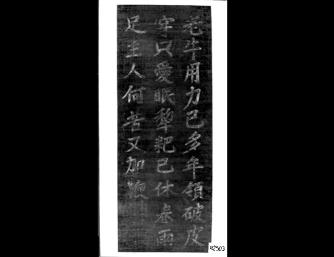 老牛用力已多年領破皮
穿只愛眠犂耙已休春雨
足主人何苦又加鞭